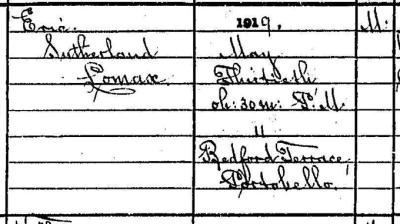 Eric. 1919. M.
Sutherland May
Lomax Thirtieth
0h: 30m: P.M.
11
Bedford Terrace
Portobello.